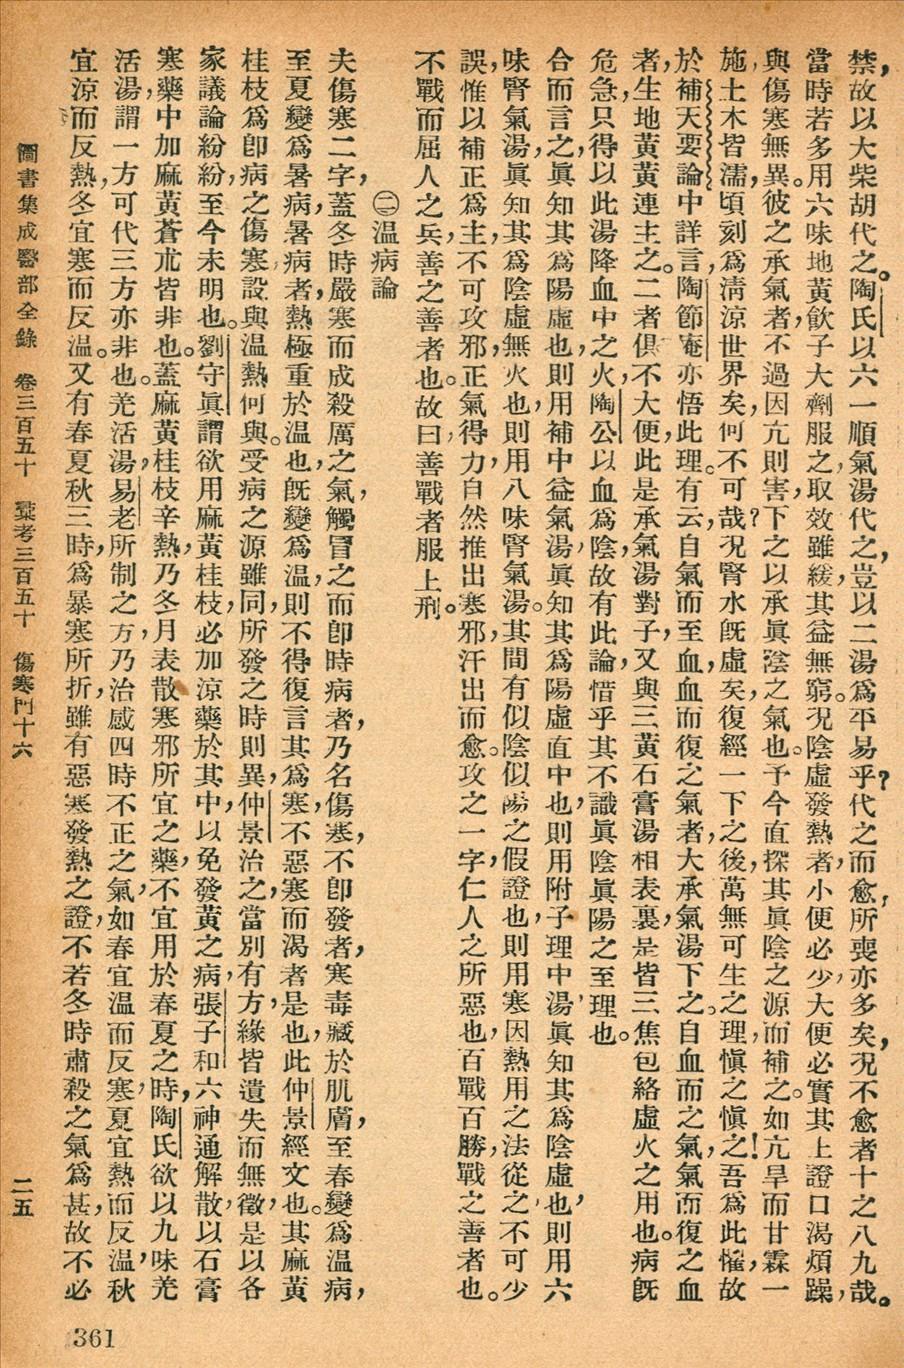 禁，故以大柴胡代之。陶氏以六一順氣湯代之，豈以二湯爲平易乎？代之而愈，所喪亦多矣，況不愈者十之八九哉。
當時若多用六味地黃飲子大劑服之，取效雖緩，其益無窮。況陰虛發熱者，小便必少，大便必實，其上證口渴煩躁，
與傷寒無異。彼之承氣者，不過因亢則害，下之以承眞陰之氣也。予今直探其眞陰之源而補之。如亢旱而甘霖一
施，土木皆濡，頃刻爲清涼世界矣，何不可哉？況腎水旣虛矣，復經一下之後，萬無可生之理，愼之愼之！吾爲此懼，故
於補天要論中詳言，陶節菴亦悟此理。有云，自氣而至血，血而復之氣者，大承氣湯下之。自血而之氣，氣而復之血
者，生地黃黃連主之。二者俱不大便，此是承氣湯對子，又與三黃石膏湯相表裏，是皆三焦包絡虛火之用也。病旣
危急，只得以此湯降血中之火，陶公以血爲陰，故有此論，惜乎其不識眞陰眞陽之至理也。
合而言之，眞知其爲陽虛也，則用補中益氣湯，眞知其爲陽虛直中也，則用附子理中湯，眞知其爲陰虛也，則用六
味腎氣湯，眞知其爲陰虛無火也，則用八味腎氣湯。其間有似陰似陽之假證也，則用寒因熱用之法從之，不可少
誤，惟以補正爲主，不可攻邪，正氣得力，自然推出寒邪，汗出而愈。攻之一字，仁人之所惡也，百戰百勝，戰之善者也。
不戰而屈人之兵，善之善者也。故曰，善戰者服上刑。
㊁温病論
夫傷寒二字，蓋冬時嚴寒而成殺厲之氣，觸冒之而卽時病者，乃名傷寒，不卽發者，寒毒藏於肌膚，至春變爲温病，
至夏變爲暑病，暑病者，熱極重於温也，旣變爲温，則不得復言其爲寒，不惡寒而渴者是也，此仲景經文也。其麻黃
桂枝爲卽病之傷寒設，與温熱何與。受病之源雖同，所發之時則異，仲景治之，當別有方，緣皆遺失而無徵，是以各
家議論紛紛，至今未明也。劉守眞謂欲用麻黃桂枝，必加涼藥於其中，以免發黃之病，張子和六神通解散，以石膏
寒藥中加麻黃蒼朮皆非也。蓋麻黃桂枝辛熱，乃冬月表散寒邪所宜之藥，不宜用於春夏之時，陶氏欲以九味羌
活湯，謂一方可代三方亦非也。羌活湯，易老所制之方，乃治感四時不正之氣，如春宜温而反寒，夏宜熱而反温，秋
宜涼而反熱，冬宜寒而反温。又有春夏秋三時，爲暴寒所折，雖有惡寒發熱之證，不若冬時肅殺之氣爲甚，故不必
圖書集成醫部全錄　卷三百五十　彙考三百五十　傷寒門十六
二五
361